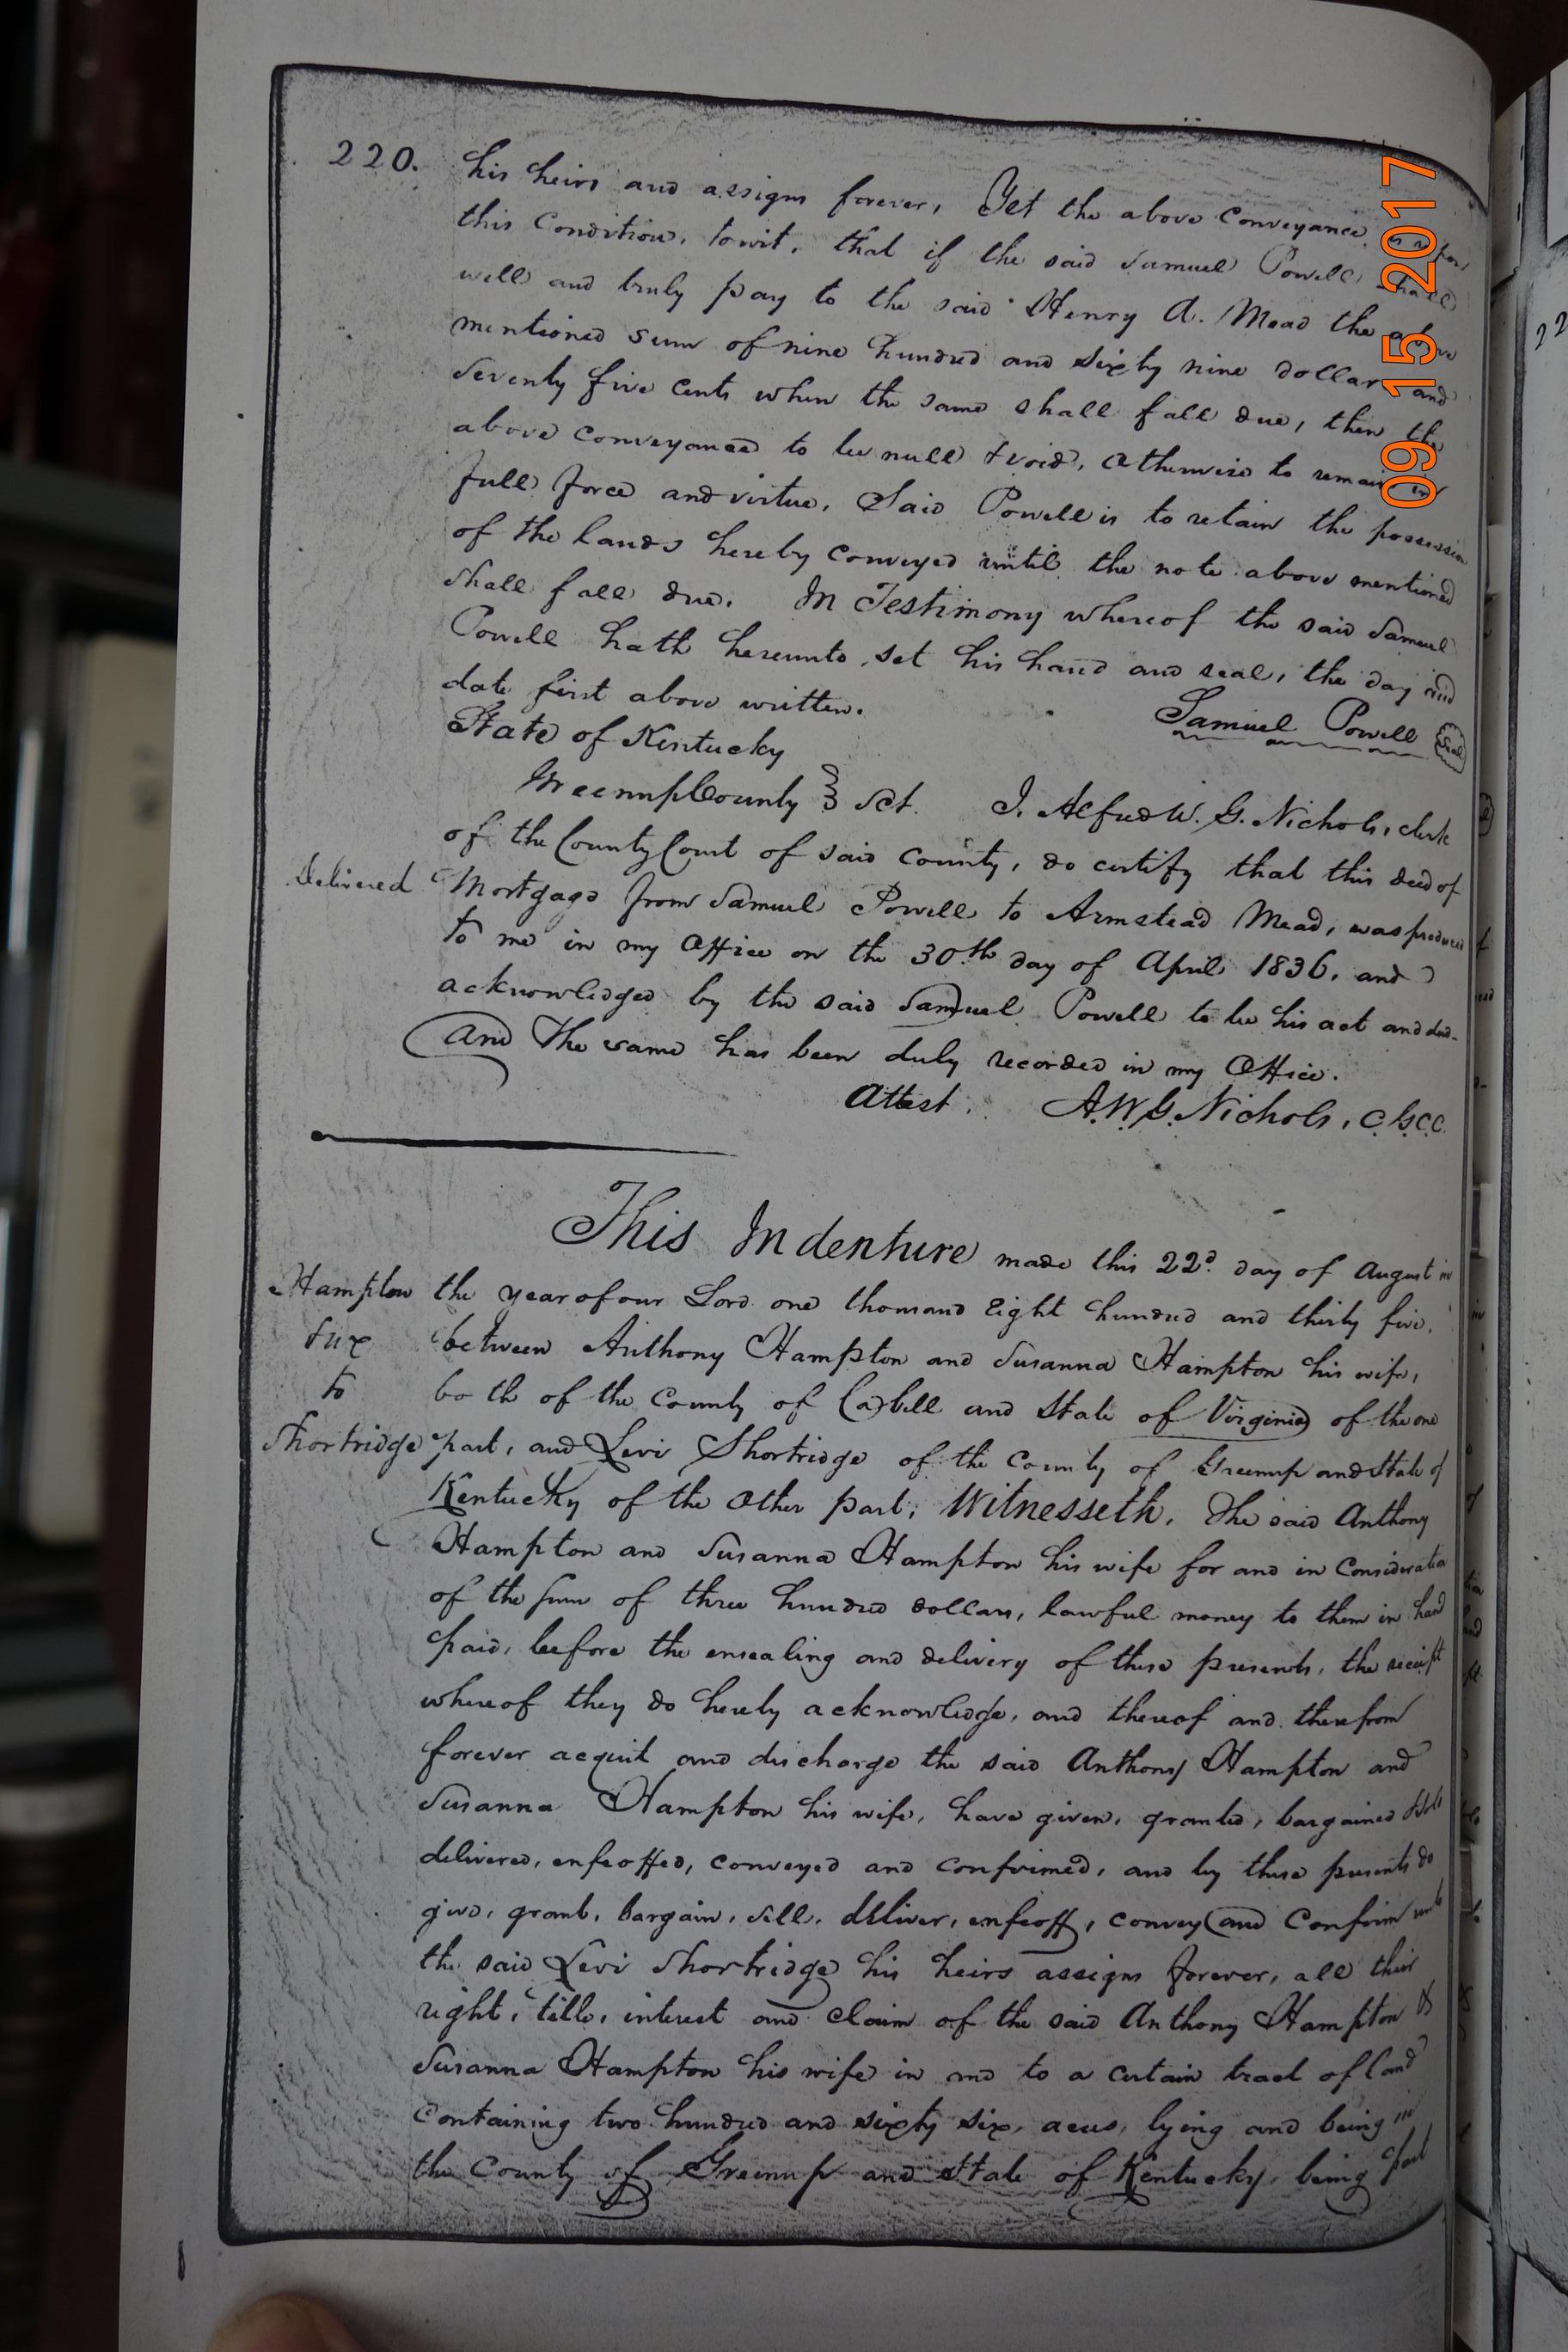 220. his heirs and assigns forever, Yet the above conveyance is upon
this condition, towit, that if the said Samuel Powell shall
well and truly pay to the said Henry A. Mead the above
mentioned sum of nine hundred and sixty nine dollars and
seventy five cents when the same shall fall due, then the
above conveyance to be null & void, otherwise to remain in
full force and virtue, Said Powell is to retain the possession
of the lands hereby conveyed until the note above mentioned
shall fall due. In Testimony whereof the said Samuel
Powell hath hereunto set his hand and seal, the day and
date first above written.
Samuel Powell Seal
State of Kentucky
Greenup County Sct. I, Alfred W. G. Nichols, clerk
of the County Court of said county, do certify that this deed of
Delivered Mortgage from Samuel Powell to Armstead Mead, was produced
to me in my Office on the 30th day of April 1836, and
acknowledged by the said Samuel Powell to be his act and deed.
And the same has been duly recorded in my Office.
Attest. A.W.G. Nichols, C.G.C.C.
This Indenture made this 22d day of August in
Hampton the year of our Lord one thousand Eight hundred and thirty five,
&ux between Anthony Hampton and Susanna Hampton his wife,
to both of the County of Cabell and State of Virginia of the one
Shortridge part, and Levi Shortridge of the County of Greenup and State of
Kentucky of the Other part, Witnesseth, The said Anthony
Hampton and Susanna Hampton his wife for and in Consideration
of the sum of three hundred dollars, lawful money to them in hand
paid, before the ensealing and delivery of these presents, the receipt
whereof they do hereby acknowledge, and thereof and therefrom
forever acquit and discharge the said Anthony Hampton and
Susanna Hampton his wife, have given, granted, bargained & sold
delivered, enfeoffed, conveyed and confirmed, and by these presents do
give, grant, bargain, sell, deliver, enfeoff, convey and Confirm unto
the said Levi Shortridge his heirs assigns forever, all their
right, title, interest and claim of the said Anthony Hampton &
Susanna Hampton his wife in and to a certain tract of land
Containing two hundred and sixty six, acres, lying and being in
the County of Greenup and State of Kentucky, being part
09 15 2017